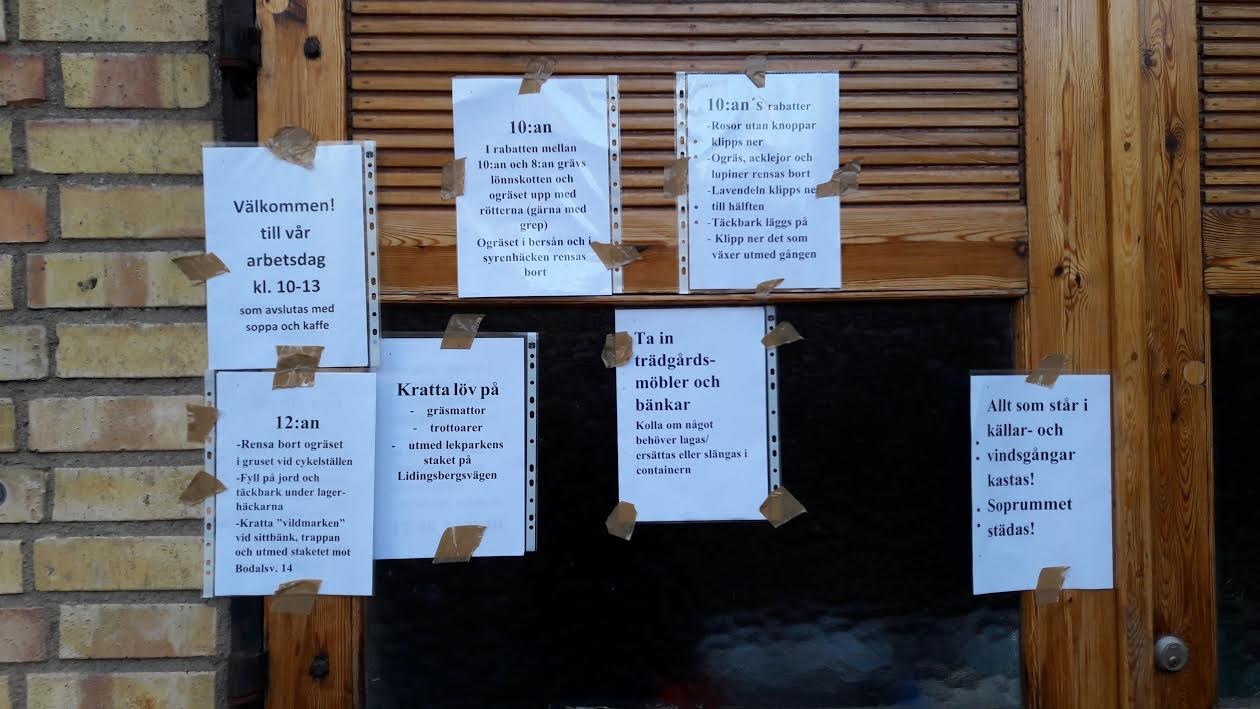 Välkommen!
till vår
arbetsdag
kl. 10-13
som avslutas med
soppa och kaffe
10:an
I rabatten mellan
10:an och 8:an grävs
lönnskotten och
ogräset upp med
rötterna (gärna med
grep)
Ogräset i bersån och i
syrenhäcken rensas
bort
10:an´s rabatter
-Rosor utan knoppar
klipps ner
-Ogräs, acklejor och
lupiner rensas bort
-Lavendeln klipps ne
till hälften
-Täckbark läggs på
- Klipp ner det som
växer utmed gången
12:an
-Rensa bort ogräset
i gruset vid cykelställen
-Fyll på jord och
täckbark under lager-
häckarna
-Kratta ”vildmarken”
vid sittbänk, trappan
och utmed staketet mot
Bodalsv. 14
Kratta löv på
- gräsmattor
- trottoarer
- utmed lekparkens
staket på
Lidingsbergsvägen
Ta in
trädgårds-
möbler och
bänkar
Kolla om något
behöver lagas/
ersättas eller slängas i
containern
Allt som står i
källar- och
vindsgångar
kastas!
Soprummet
städas!